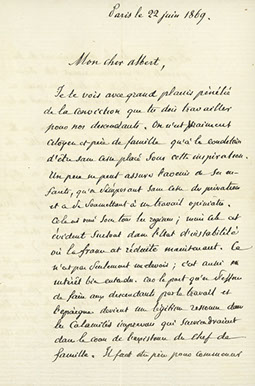 Paris le 22 juin 1869.
Mon cher Albert,
Je te vois avec grand plaisir pénétré
de la conviction que tu dois travailler
pour nos descendants. On n'est vraiment
citoyen et père de famille qu'à la condition
d'être sans cesse placé sous cette inspiration.
Un père ne peut assurer l'avenir de ses en-
fants, qu'en s'imposant sans cesse des privations
et en se soumettant à un travail opiniâtre.
Cela est vrai sous tous les régimes; mais cela est
évident surtout dans l'état d'instabilité
où la france est réduite maintenant. Ce
n'est pas seulement un devoir; c'est aussi un
intérêt bien entendu. Car le père qu'
de faire aux descendants par le travail et
l'épargne devient une légitime ressource dans
les calamités imprévues qui surviendraient
dans le cours de l'existence du chef de
famille. Il faut du peu pour commencer